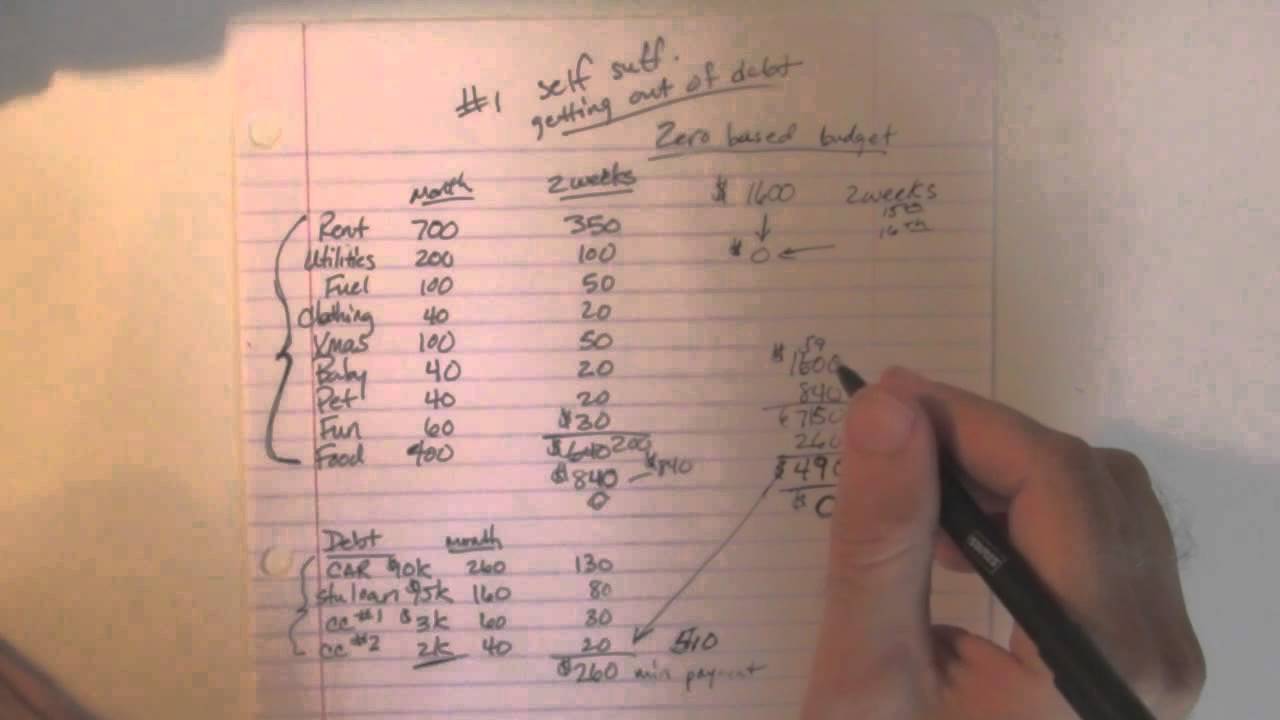 #1 self suff.
getting out of debt
Zero based budget
Month 2 weeks $ 1600 2 weeks
15th
Rent 700 350 16th
Utilities 200 100 $ 0
Fuel 100 50
Clothing 40 20
Xmas 100 50 59
Baby 40 20 $ 1600
Pet 40 20 840
Fun 60 $30 750
Food 400 $640 200 260
$840 $840 $ 490
0 $ 0
Debt month
CAR 260 130
stu loan 160 80
cc #1 $ 3k 60 30
cc #2 2k 40 20 510
$260 min payment